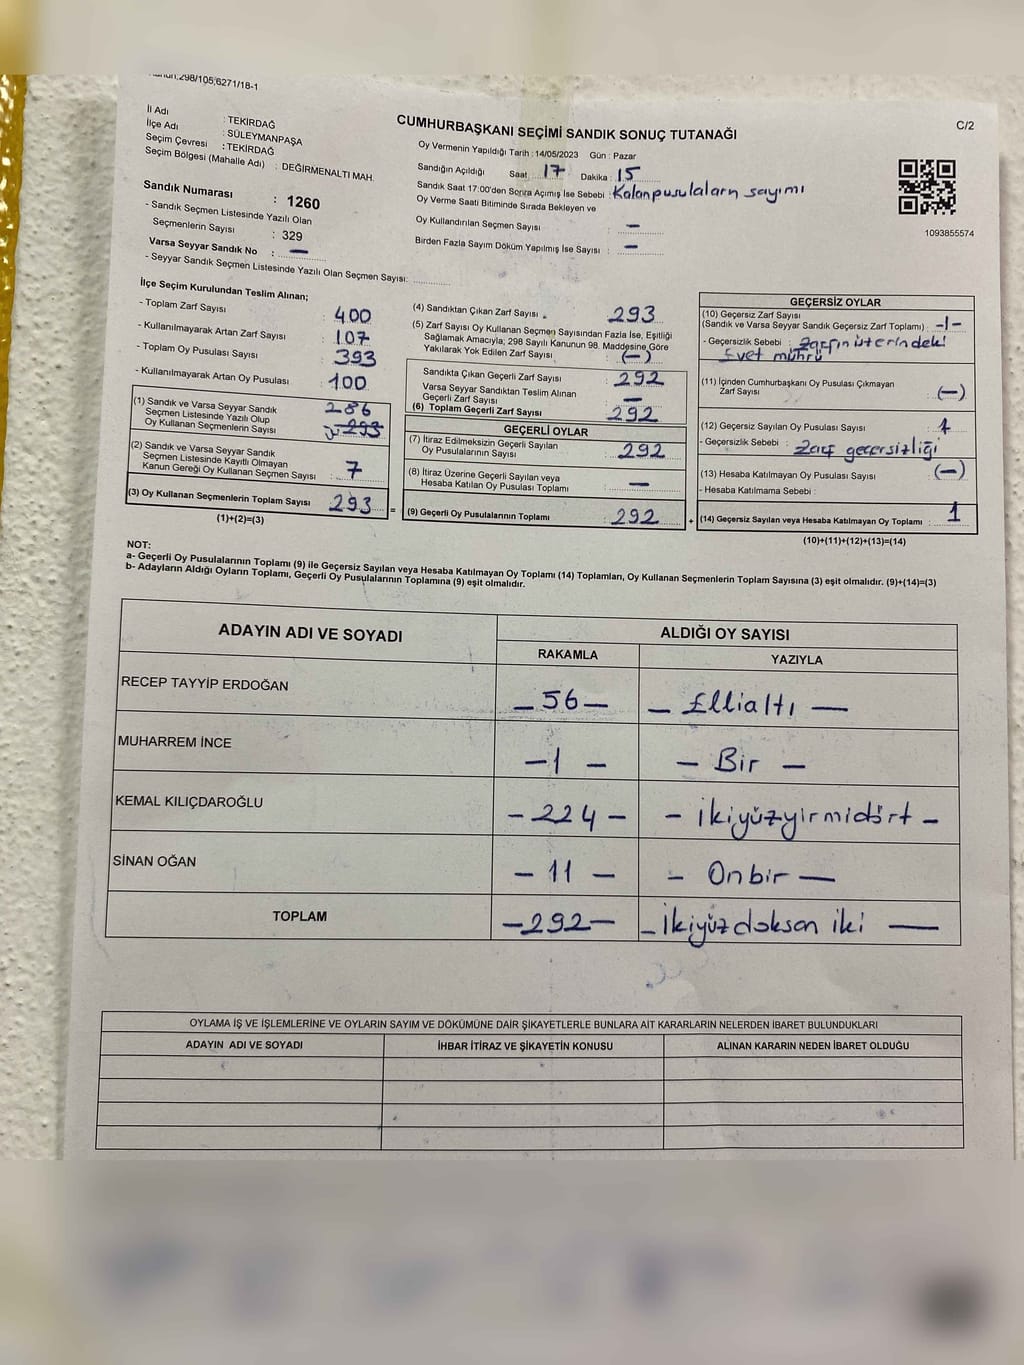 298/105;6271/18-1
C/2
İl Adı : TEKİRDAĞ
İlçe Adı : SÜLEYMANPAŞA
Seçim Çevresi : TEKİRDAĞ
Seçim Bölgesi (Mahalle Adı) : DEĞİRMENALTI MAH.
Sandık Numarası : 1260
- Sandık Seçmen Listesinde Yazılı Olan
Seçmenlerin Sayısı : 329
Varsa Seyyar Sandık No : —
- Seyyar Sandık Seçmen Listesinde Yazılı Olan Seçmen Sayısı:
CUMHURBAŞKANI SEÇİMİ SANDIK SONUÇ TUTANAĞI
Oy Vermenin Yapıldığı Tarih : 14/05/2023 Gün : Pazar
Sandığın Açıldığı Saat 17 Dakika : 15
Sandık Saat 17:00'den Sonra Açımış İse Sebebi : Kalan pusulaların sayımı
Oy Verme Saati Bitiminde Sırada Bekleyen ve
Oy Kullandırılan Seçmen Sayısı : —
Birden Fazla Sayım Döküm Yapılmış İse Sayısı : —
1093855574
İlçe Seçim Kurulundan Teslim Alınan;
- Toplam Zarf Sayısı : 400
- Kullanılmayarak Artan Zarf Sayısı : 107
- Toplam Oy Pusulası Sayısı : 393
- Kullanılmayarak Artan Oy Pusulası : 100
(1) Sandık ve Varsa Seyyar Sandık
Seçmen Listesinde Yazılı Olup
Oy Kullanan Seçmenlerin Sayısı 286 293
(2) Sandık ve Varsa Seyyar Sandık
Seçmen Listesinde Kayıtlı Olmayan
Kanun Gereği Oy Kullanan Seçmen Sayısı : 7
(3) Oy Kullanan Seçmenlerin Toplam Sayısı 293
(1)+(2)=(3)
=
(4) Sandıktan Çıkan Zarf Sayısı : 293
(5) Zarf Sayısı Oy Kullanan Seçmen Sayısından Fazla İse, Eşitliği
Sağlamak Amacıyla, 298 Sayılı Kanunun 98. Maddesine Göre
Yakılarak Yok Edilen Zarf Sayısı (—)
Sandıkta Çıkan Geçerli Zarf Sayısı : 292
Varsa Seyyar Sandıktan Teslim Alınan
Geçerli Zarf Sayısı : —
(6) Toplam Geçerli Zarf Sayısı : 292
GEÇERLİ OYLAR
(7) İtiraz Edilmeksizin Geçerli Sayılan
Oy Pusulalarının Sayısı : 292
(8) İtiraz Üzerine Geçerli Sayılan veya
Hesaba Katılan Oy Pusulası Toplamı : —
(9) Geçerli Oy Pusulalarının Toplamı : 292
+
GEÇERSİZ OYLAR
(10) Geçersiz Zarf Sayısı
(Sandık ve Varsa Seyyar Sandık Geçersiz Zarf Toplamı) : -1-
- Geçersizlik Sebebi : Zarfın üzerindeki
Evet mührü
(11) İçinden Cumhurbaşkanı Oy Pusulası Çıkmayan
Zarf Sayısı : (—)
(12) Geçersiz Sayılan Oy Pusulası Sayısı : 1
- Geçersizlik Sebebi : Zarf geçersizliği
(13) Hesaba Katılmayan Oy Pusulası Sayısı : (—)
- Hesaba Katılmama Sebebi :
(14) Geçersiz Sayılan veya Hesaba Katılmayan Oy Toplamı : 1
(10)+(11)+(12)+(13)=(14)
NOT:
a- Geçerli Oy Pusulalarının Toplamı (9) ile Geçersiz Sayılan veya Hesaba Katılmayan Oy Toplamı (14) Toplamları, Oy Kullanan Seçmenlerin Toplam Sayısına (3) eşit olmalıdır. (9)+(14)=(3)
b- Adayların Aldığı Oyların Toplamı, Geçerli Oy Pusulalarının Toplamına (9) eşit olmalıdır.
ADAYIN ADI VE SOYADI
ALDIĞI OY SAYISI
RAKAMLA YAZIYLA
RECEP TAYYİP ERDOĞAN – 56 – – Ellialtı –
MUHARREM İNCE – 1 – – Bir –
KEMAL KILIÇDAROĞLU – 224 – – İkiyüzyirmidört –
SİNAN OĞAN – 11 – – Onbir –
TOPLAM – 292 – – İkiyüzdoksan iki –
OYLAMA İŞ VE İŞLEMLERİNE VE OYLARIN SAYIM VE DÖKÜMÜNE DAİR ŞİKAYETLERLE BUNLARA AİT KARARLARIN NELERDEN İBARET BULUNDUKLARI
ADAYIN ADI VE SOYADI İHBAR İTİRAZ VE ŞİKAYETİN KONUSU ALINAN KARARIN NEDEN İBARET OLDUĞU